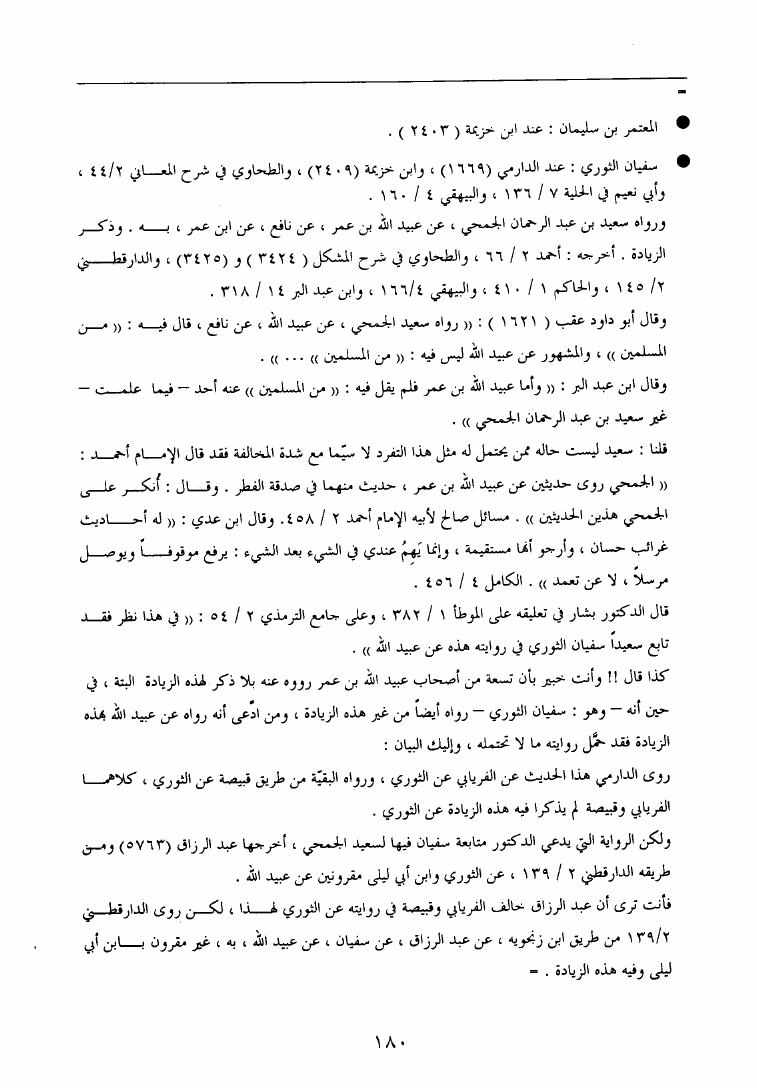 =
● المعتمر بن سليمان : عند ابن خزيمة ( ٢٤٠٣ ) .
● سفيان الثوري : عند الدارمي (١٦٦٩) ، وابن خزيمة (٢٤٠٩) ، والطحاوي في شرح المعـــاني ٤٤/٢ ،
وأبي نعيم في الحلية ٧ / ١٣٦ ، والبيهقي ٤ / ١٦٠ .
ورواه سعيد بن عبد الرحمان الجمحي ، عن عبيد الله بن عمر ، عن نافع ، عن ابن عمر ، بـــه . وذكـــر
الزيادة . أخرجه : أحمد ٢ / ٦٦ ، والطحاوي في شرح المشكل ( ٣٤٢٤ ) و (٣٤٢٥) ، والدارقطـــني
٢/ ١٤٥ ، والحاكم ١ / ٤١٠ ، والبيهقي ١٦٦/٤ ، وابن عبد البر ١٤ / ٣١٨ .
وقال أبو داود عقب ( ١٦٢١ ) : (( رواه سعيد الجمحي ، عن عبيد الله ، عن نافع ، قال فيـــه : (( مـــن
المسلمين )) ، والمشهور عن عبيد الله ليس فيه : (( من المسلمين )) ... )) .
وقال ابن عبد البر : (( وأما عبيد الله بن عمر فلم يقل فيه : (( من المسلمين )) عنه أحد – فيما علمـــت –
غير سعيد بن عبد الرحمان الجمحي )) .
قلنا : سعيد ليست حاله ممن يحتمل له مثل هذا التفرد لا سيّما مع شدة المخالفة فقد قال الإمـــام أحمـــد :
(( الجمحي روى حديثين عن عبيد الله بن عمر ، حديث منهما في صدقة الفطر . وقـــال : أُنكـــر علـــى
الجمحي هذين الحديثين )) . مسائل صالح لأبيه الإمام أحمد ٢ / ٤٥٨. وقال ابن عدي : (( له أحـــاديث
غرائب حسان ، وأرجو أنها مستقيمة ، وإنما يَهِمُ عندي في الشيء بعد الشيء : يرفع موقوفـــاً ويوصـــل
مرسلاً ، لا عن تعمد )) . الكامل ٤ / ٤٥٦ .
قال الدكتور بشار في تعليقه على الموطأ ١ / ٣٨٢ ، وعلى جامع الترمذي ٢ / ٥٤ : (( في هذا نظر فقـــد
تابع سعيداً سفيان الثوري في روايته هذه عن عبيد الله )) .
كذا قال !! وأنت خبير بأن تسعة من أصحاب عبيد الله بن عمر رووه عنه بلا ذكر لهذه الزيادة البتة ، في
حين أنه – وهو : سفيان الثوري – رواه أيضاً من غير هذه الزيادة ، ومن ادّعى أنه رواه عن عبيد الله بهذه
الزيادة فقد حمَّل روايته ما لا تحتمله ، وإليك البيان :
روى الدارمي هذا الحديث عن الفريابي عن الثوري ، ورواه البقيّة من طريق قبيصة عن الثوري ، كلاهمـــا
الفريابي وقبيصة لم يذكرا فيه هذه الزيادة عن الثوري .
ولكن الرواية التي يدعي الدكتور متابعة سفيان فيها لسعيد الجمحي ، أخرجها عبد الرزاق (٥٧٦٣) ومـــن
طريقه الدارقطني ٢ / ١٣٩ ، عن الثوري وابن أبي ليلى مقرونين عن عبيد الله .
فأنت ترى أن عبد الرزاق خالف الفريابي وقبيصة في روايته عن الثوري لهـــذا ، لكـــن روى الدارقطـــني
١٣٩/٢ من طريق ابن زنجويه ، عن عبد الرزاق ، عن سفيان ، عن عبيد الله ، به ، غير مقرون بـــابن أبي
ليلى وفيه هذه الزيادة . =
١٨٠